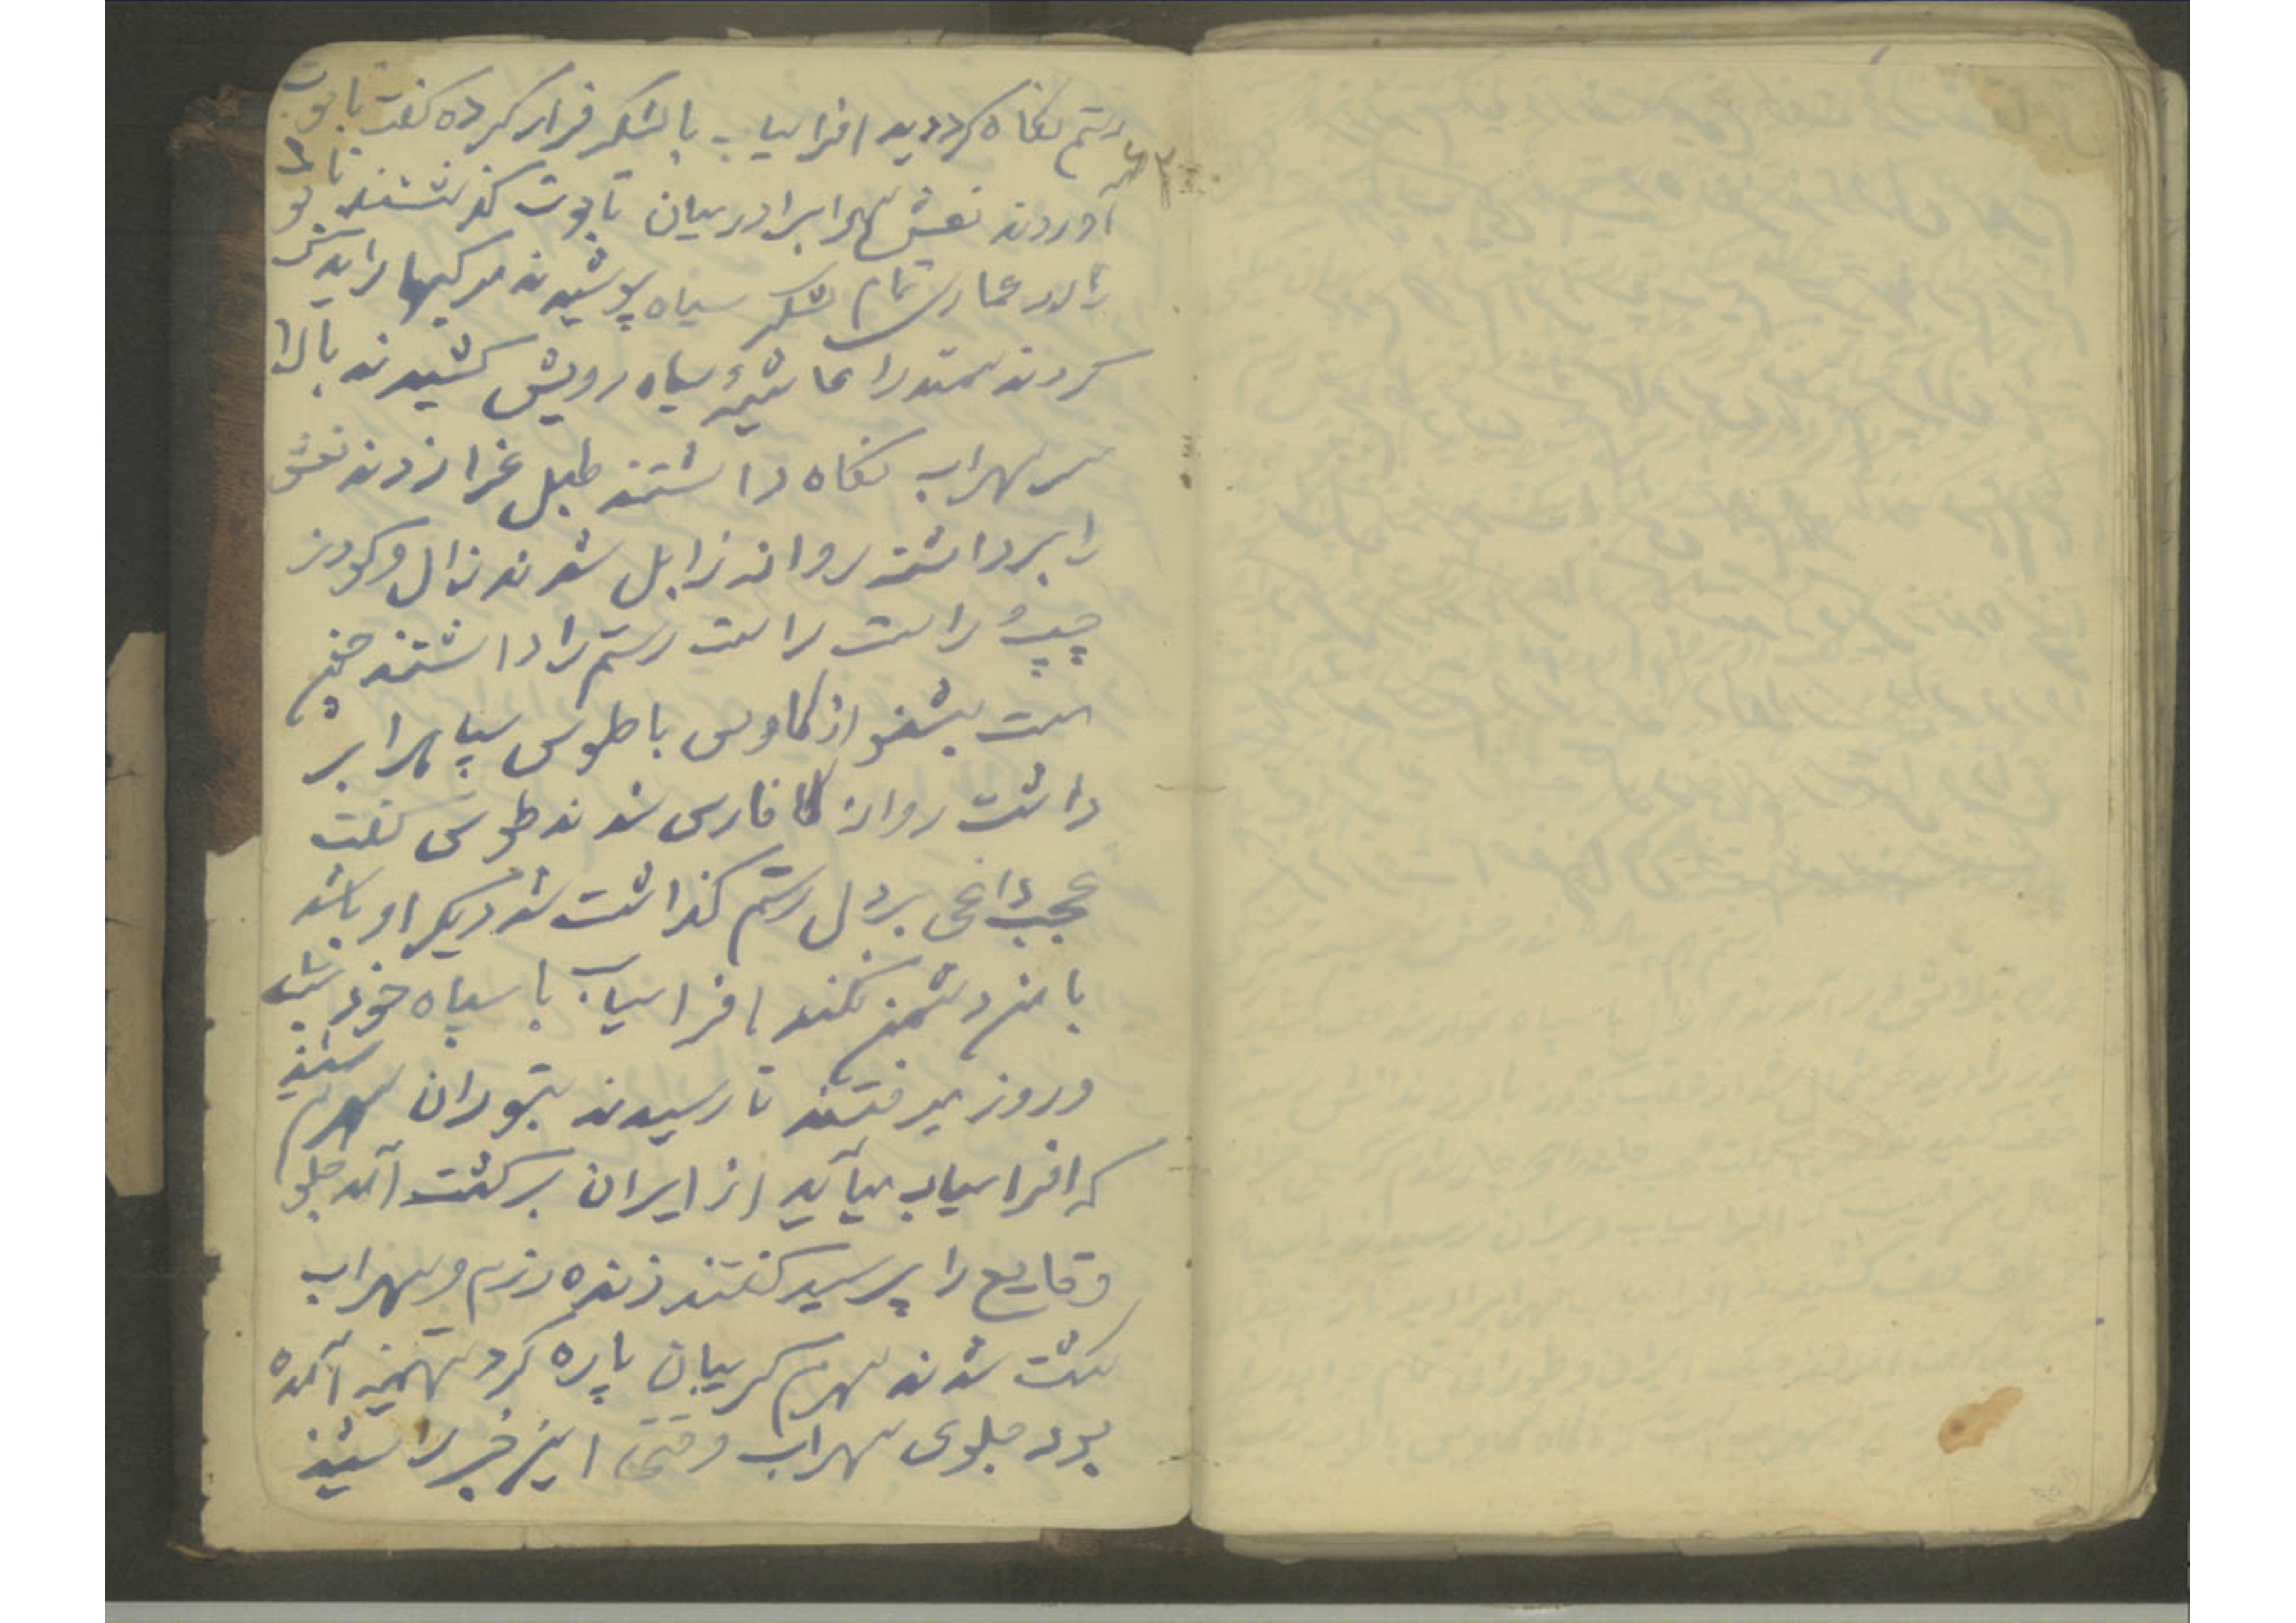 رستم نکاه کرد دید افراسیاب با لشکر فرار کرده کفت تابوت
آوردند نعش سهرابرا در میان تابوت کذاشتند تابوت
را در عماری تمام لشکر سیاه پوشیدند مرکبها را یدک
کردند سمند را غاشیهٔ سیاه رویش کشیدند بالا
سر سهراب نکاه داشتند طبل عزا زدند نعش
را برداشتند روانه زابل شدند زال و کودرز
چپ و راست راست رستم را داشتند
است بشنو از کاوس با طوس سپاه را بر
داشت روانه فارس شدند طوس کفت
عجب داغی بر دل رستم کذاشت شد دیکر او باشد
با من دشمنی نکند افراسیاب با سپاه خود شب
و روز میرفتند تا رسیدند بتوران سهرم شنید
که افراسیاب میآید از ایران برکشت آمد جلو
وقایع را پرسید کفتند زنده رزم و سهراب
کشت شدند سهرم کریبان پاره کرد تهمینه آمده
بود جلوی سهراب وقتی این خبر را شنید